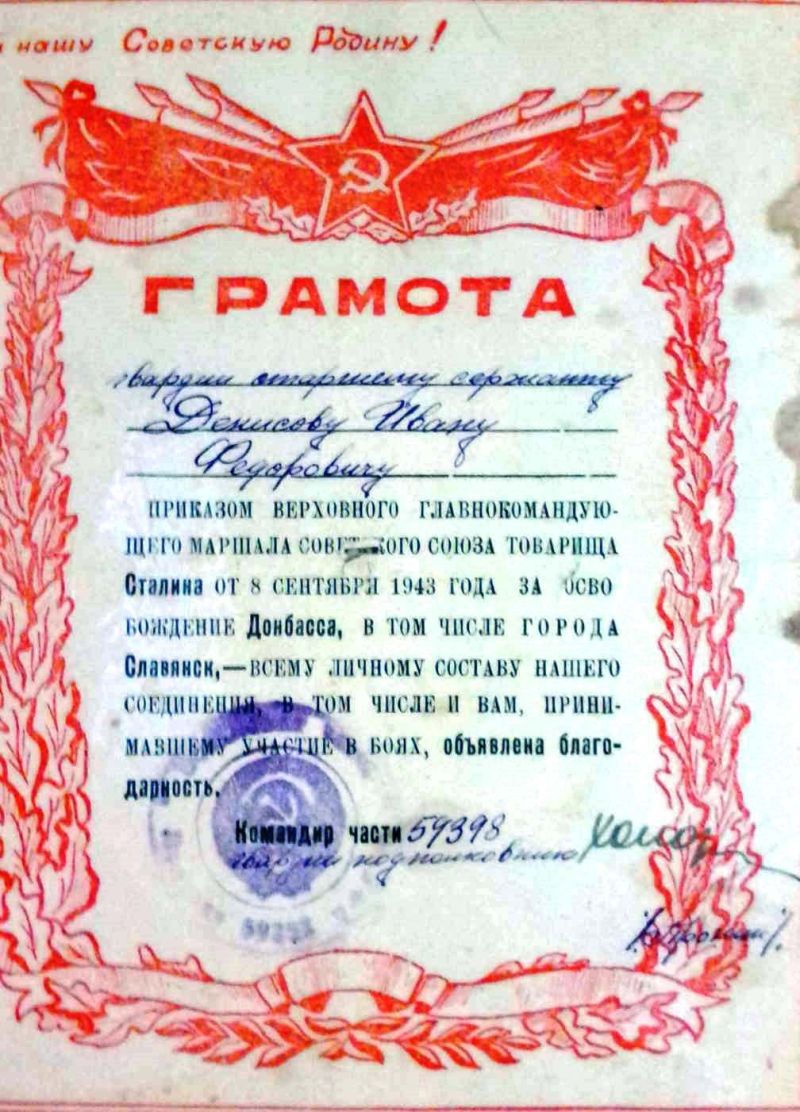 нашу Советскую Родину!
ГРАМОТА
гвардии старшему сержанту
Денисову Ивану
Федоровичу
ПРИКАЗОМ ВЕРХОВНОГО ГЛАВНОКОМАНДУЮ-
ЩЕГО МАРШАЛА СОВЕТСКОГО СОЮЗА ТОВАРИЩА
Сталина ОТ 8 СЕНТЯБРЯ 1943 ГОДА ЗА ОСВО
БОЖДЕНИЕ Донбасса, В ТОМ ЧИСЛЕ ГОРОДА
Славянск,—ВСЕМУ ЛИЧНОМУ СОСТАВУ НАШЕГО
СОЕДИНЕНИЯ, В ТОМ ЧИСЛЕ И ВАМ, ПРИНИ-
МАВШЕМУ УЧАСТИЕ В БОЯХ, объявлена благо-
дарность.
Командир части 59398
гвардии подполковник